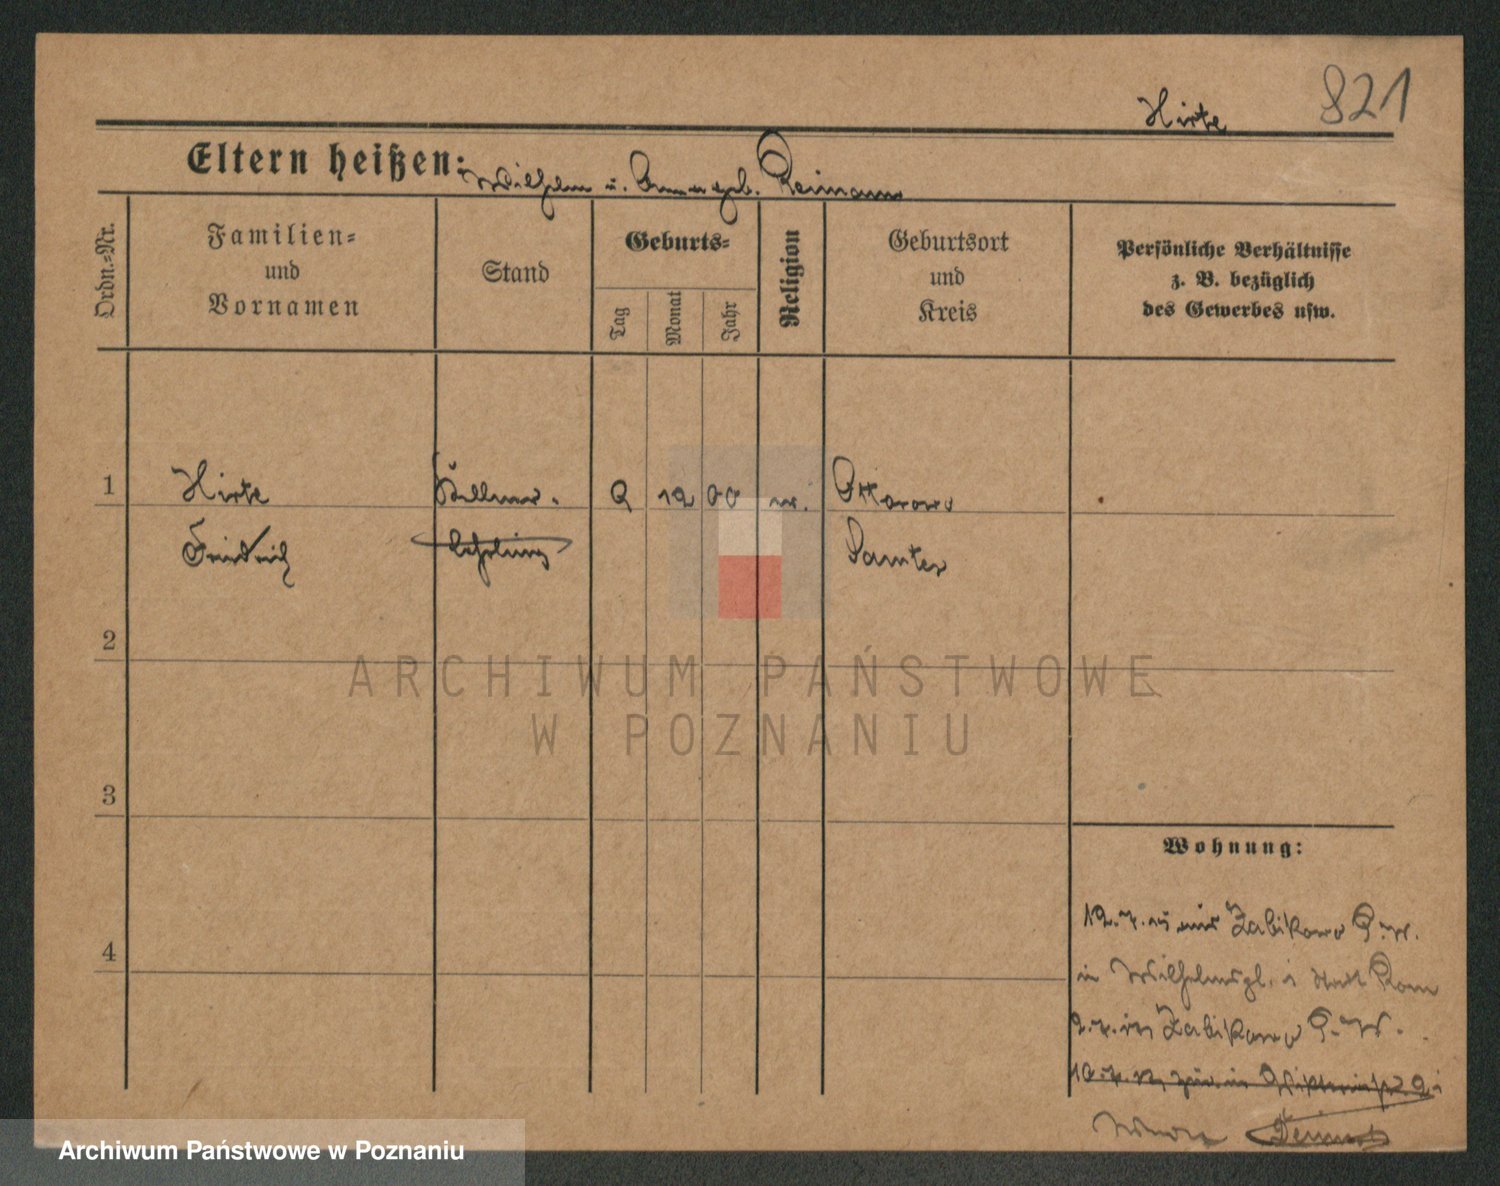 821
Hirte
Eltern heißen: Wilhelm u. Anna geb. Reimann
Ordn.-Nr.
Familien-
und
Vornamen
Stand
Geburts-
Tag
Monat
Jahr
Religion
Geburtsort
und
Kreis
Persönliche Verhältnisse
z. B. bezüglich
des Gewerbes usw.
1
Hirte
Kellner-
2 12 00
Ottorowo
Friedrich
lehrling
Samter
2
3
4
ARCHIWUM PAŃSTWOWE
W POZNANIU
Wohnung:
Zabikowo P.W.
in Wilhelmspl.
Zabikowo P.W.
Archiwum Państwowe w Poznaniu